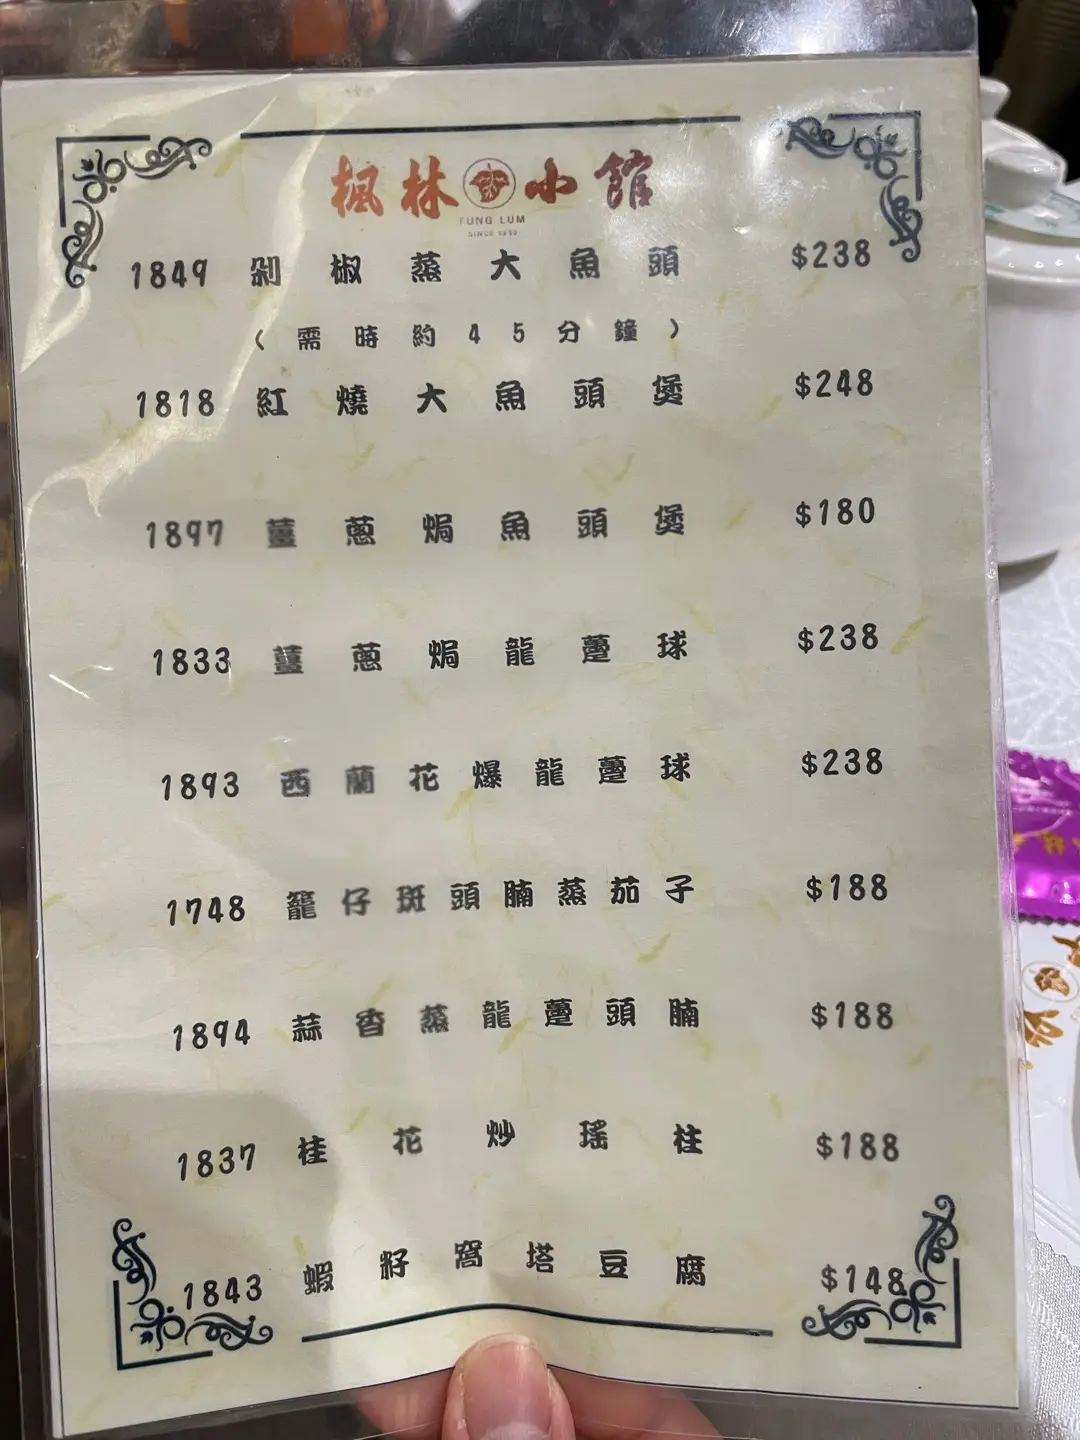 楓林小館
FUNG LUM
1849 剁椒蒸大魚頭 $238
(需時約45分鐘)
1818 紅燒大魚頭煲 $248
1897 薑蔥焗魚頭煲 $180
1833 薑蔥焗龍躉球 $238
1893 西蘭花爆龍躉球 $238
1748 籠仔斑頭腩蒸茄子 $188
1894 蒜香蒸龍躉頭腩 $188
1837 桂花炒瑤柱 $188
1843 蝦籽窩塔豆腐 $148